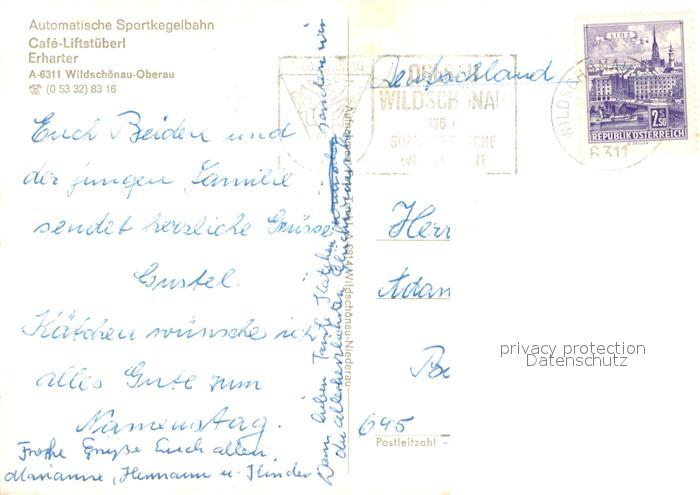 Automatische Sportkegelbahn
Café-Liftstüberl
Erharter
A-6311 Wildschönau-Oberau
☎ (0 53 32) 83 16
Euch Beiden und
der jungen Familie
sendet herzliche Grüsse
Gustel.
Kätchen wünsche ich
alles Gute zum
Namenstag.
Frohe Grüße Euch allen,
Marianne, Hermann u. Kinder
Dem lieben Tante Kätchen senden wir
die allerherzlichsten
Wildschönau-Niederau
Deutschland
OBERAU
WILDSCHÖNAU
WILDSCHÖNAU
6311
LINZ
2.50
S
REPUBLIK ÖSTERREICH
Herr
Adam
Be
645
Postleitzahl
privacy protection
Datenschutz